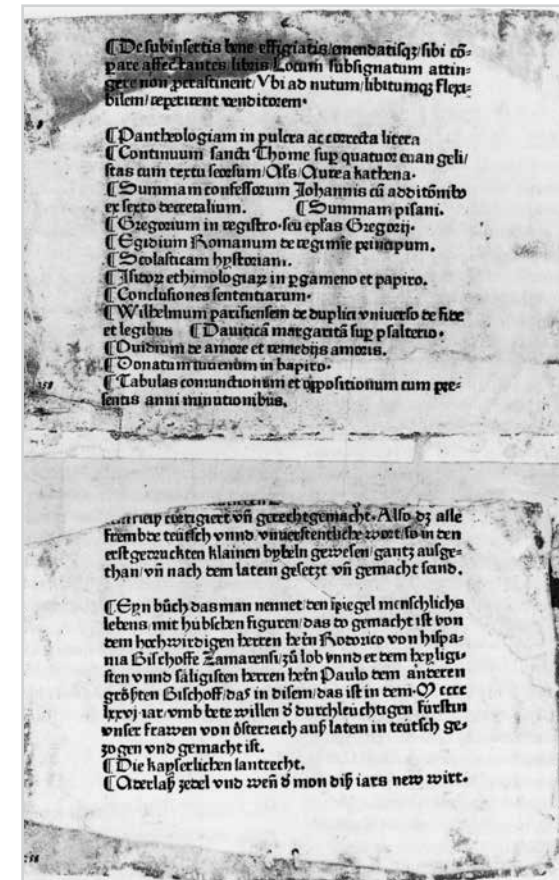 ⁋De subinsertis bene effigiatis/emendatisqꝫ/sibi cō⸗
pare affectantes/libris Locum subsignatum attin⸗
gere non perastinent/Vbi ad nutum/libitumqꝫ flexi⸗
bilem/reperirent venditorem·
⁋Pantheologiam in pulcra ac correcta litera
⁋Continuum sancti Thome sup quatuor euan geli/
stas cum textu seorsum/Als/Aurea kathena·
⁋Summam confessorum Johannis cū additōnibo
ex sexto decretalium. ⁋Summam pisani.
⁋Gregorium in registro·seu eplas Gregorij·
⁋Egidium Romanum de regimīe principum.
⁋Scolasticam hystoriam.
⁋Isidoꝝ ethimologiaꝝ in pgameno et papiro.
⁋Conclusiones sententiarum·
⁋Wilhelmum parisiensem de duplici vniuerso de fide
et legibus ⁋Dauiticā margaritā sup psalterio·
⁋Ouidium de amore et remedijs amoris.
⁋Donatum in papiro·
⁋Tabulas coniunctionum et oppositionum cum pre⸗
sentis anni minutionibus.
corrigiert vn̄ gerechtgemacht·Also dz alle
frembde teutsch vnnd vnuerstentliche wort/so in den
erstgetruckten klainen bybeln gewesen/gantz ausge⸗
than/vn̄ nach dem latein gesetzt vn̄ gemacht seind.
⁋Eyn bůch das man nennet den spiegel menschlichs
lebens/mit hübschen figuren/das do gemacht ist von
dem hochwirdigen herren herrn Roderico von hispa⸗
nia Bischoffe Zamorensi/zů lob vnnd er dem heyligi⸗
sten vnnd säligisten herren herrn Paulo dem anderen
größten Bischoff/das in disem/das ist in dem·M cccc
lxxvj·iar/vmb bete willen d̓ durchleuchtigen fürstin
vnser frawen von österreich auß latein in teutsch ge⸗
zogen vnd gemacht ist.
⁋Die kayserlichen lantrecht.
⁋Aderlaß zedel vnd wen̄ d̓ mon diß iars new wirt.